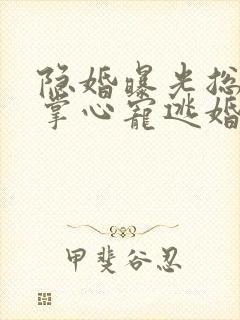 隐婚曝光总
掌心宠逃婚
甲斐谷忍